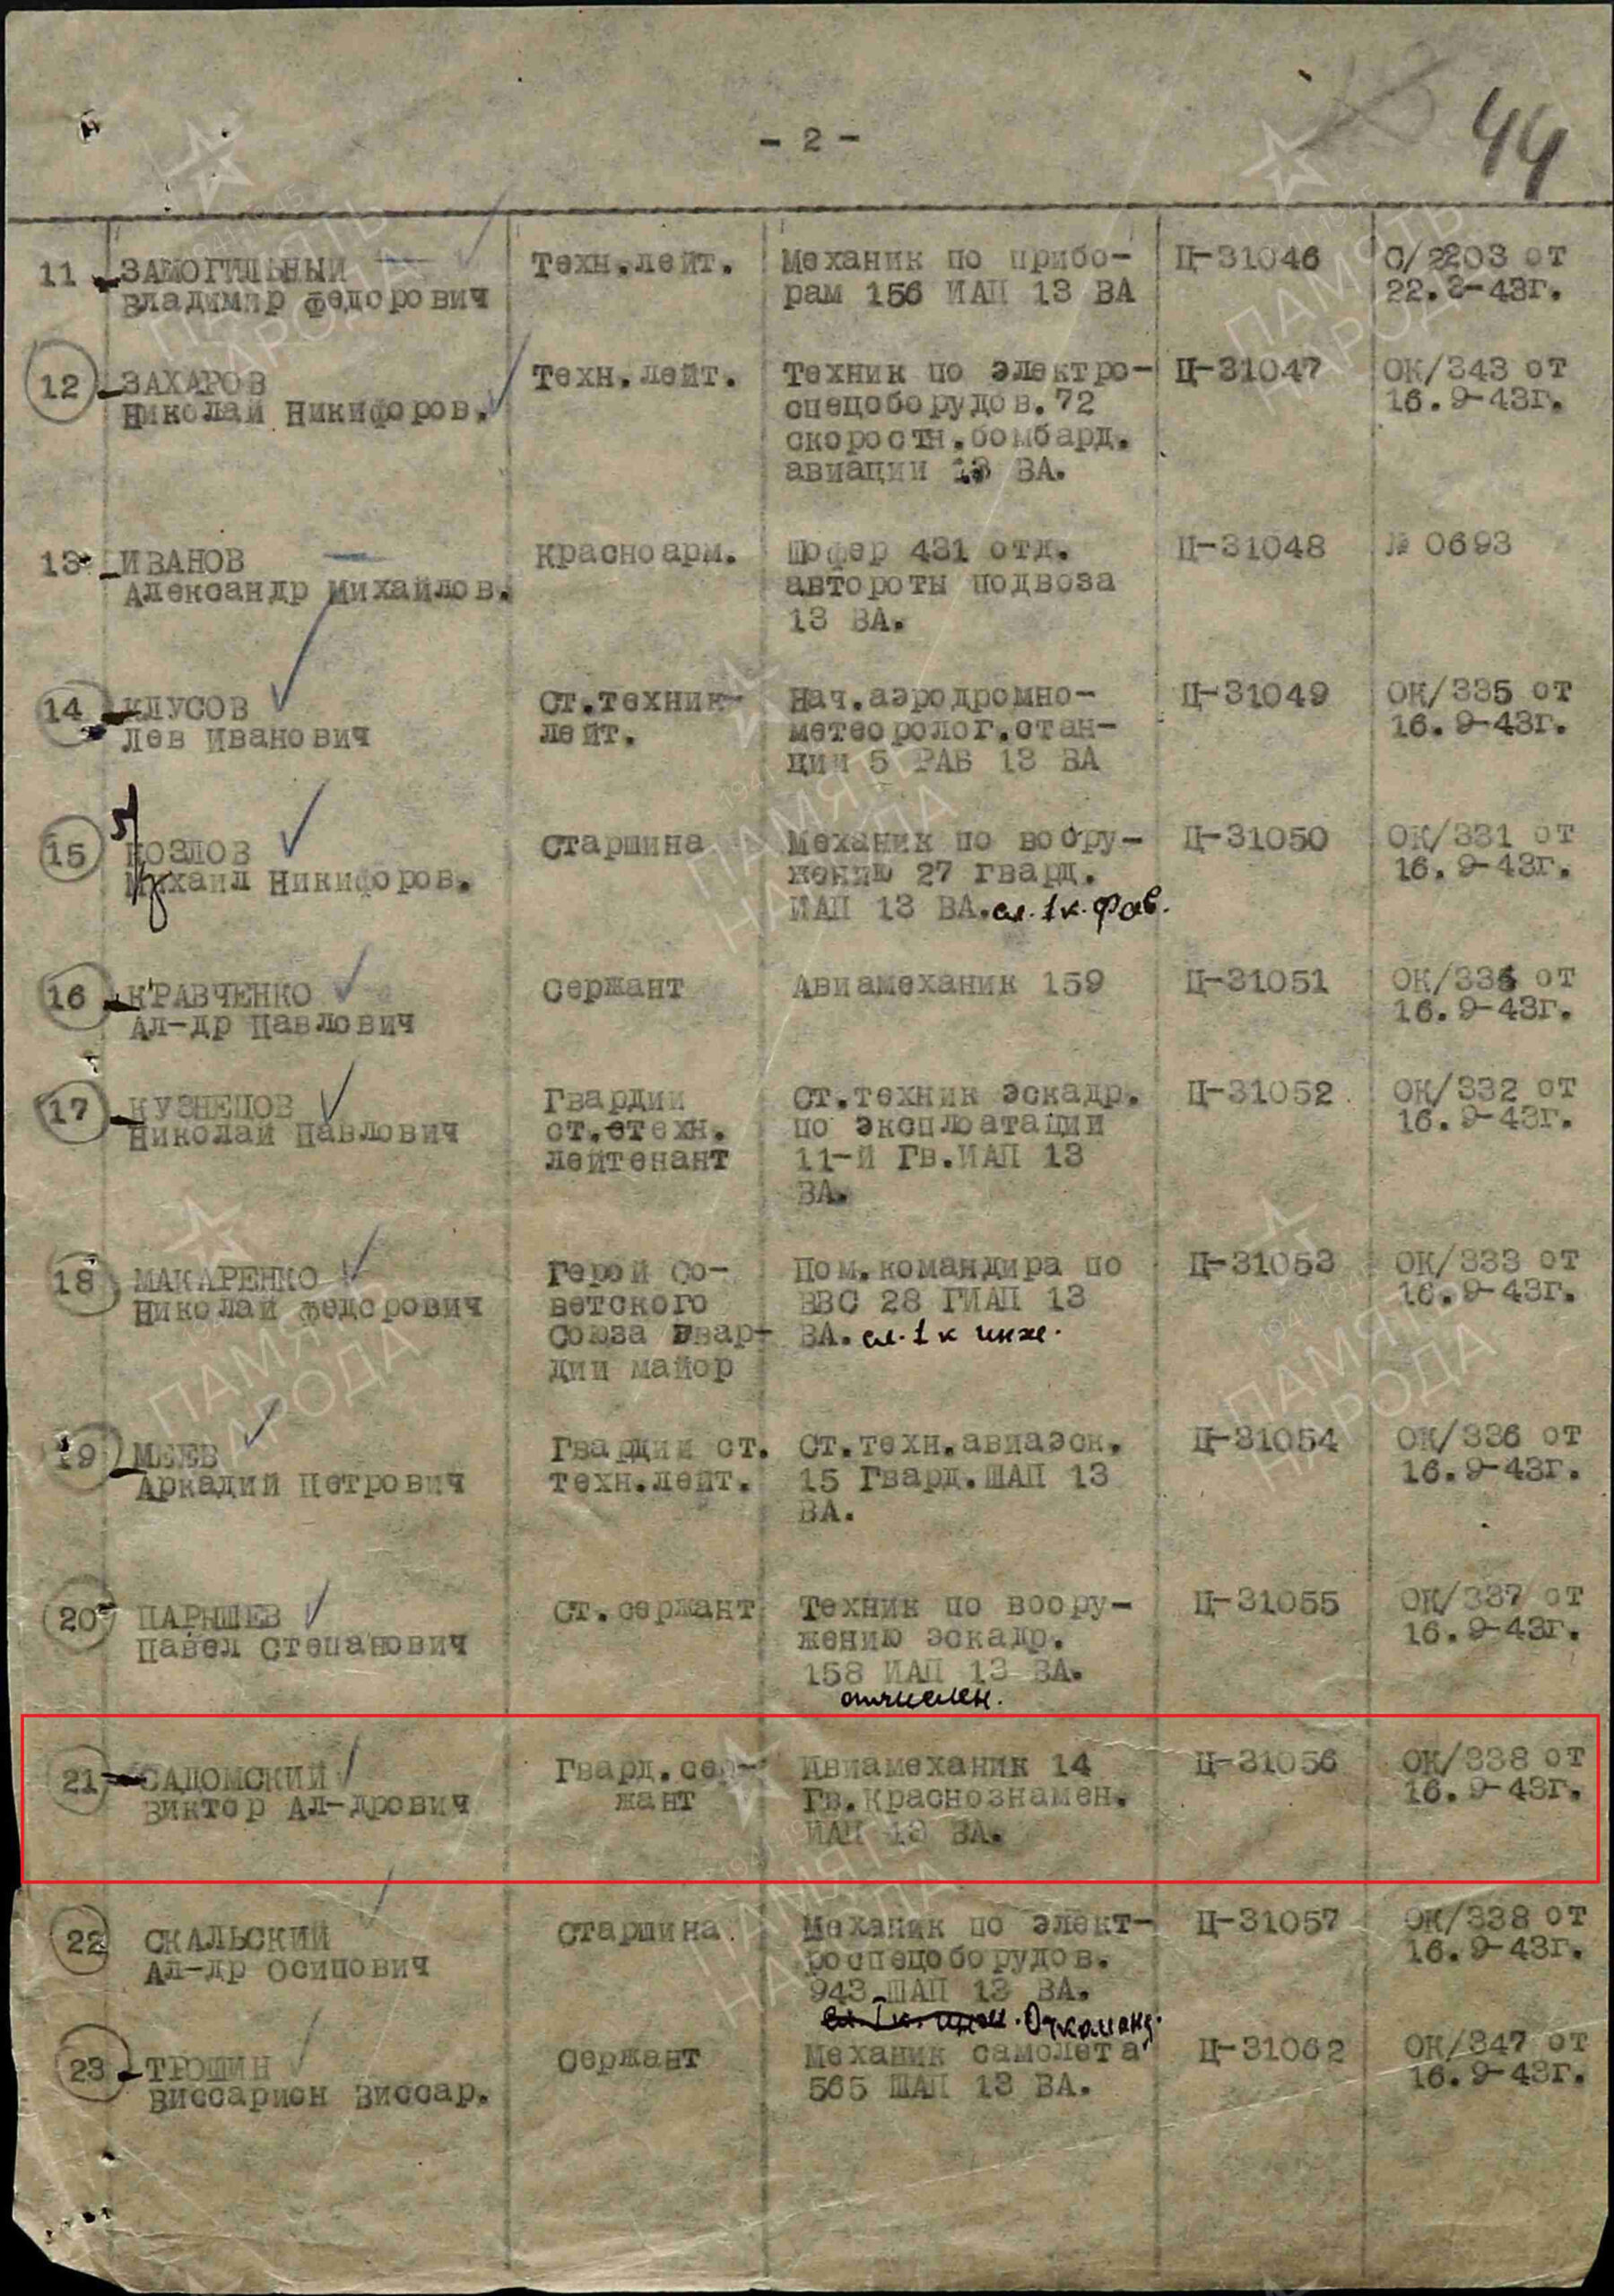 44
- 2 -
11 ЗАМОГИЛЬНЫЙ Техн.лейт. Механик по прибо- Ц-31046 О/2203 от
Владимир Федорович рам 156 ИАП 13 ВА 22.8-43г.
12 ЗАХАРОВ Техн.лейт. Техник по электро- Ц-31047 ОК/343 от
Николай Никифоров. спецоборудов.72 16.9-43г.
скоростн.бомбард.
авиации 13 ВА.
13 ИВАНОВ Красноарм. Шофер 431 отд. Ц-31048 № 0693
Александр Михайлов. автороты подвоза
13 ВА.
14 КЛУСОВ Ст.техник- Нач.аэродромно- Ц-31049 ОК/335 от
Лев Иванович лейт. метеоролог.стан- 16.9-43г.
ции 5 РАБ 13 ВА
15 КОЗЛОВ Старшина Механик по воору- Ц-31050 ОК/331 от
Михаил Никифоров. жению 27 гвард. 16.9-43г.
ИАП 13 ВА. сл. 1 к.
16 КРАВЧЕНКО Сержант Авиамеханик 159 Ц-31051 ОК/334 от
Ал-др Павлович 16.9-43г.
17 КУЗНЕЦОВ Гвардии Ст.техник эскадр. Ц-31052 ОК/332 от
Николай Павлович ст.степн. по эксплоатации 16.9-43г.
лейтенант 11-й Гв.ИАП 13
ВА.
18 МАКАРЕНКО Герой Со- Пом.командира по Ц-31053 ОК/333 от
Николай Федорович ветского ВВС 28 ГИАП 13 16.9-43г.
Союза гвар- ВА. сл. 1 к инж.
дии майор
19 МЕЕВ Гвардии ст. Ст.техн.авиаэск. Ц-31054 ОК/336 от
Аркадий Петрович техн.лейт. 15 Гвард.ШАП 13 16.9-43г.
ВА.
20 ПАРЫШЕВ Ст.сержант Техник по воору- Ц-31055 ОК/337 от
Павел Степанович жению эскадр. 16.9-43г.
158 ИАП 13 ВА.
отчислен.
21 САДОМСКИЙ Гвард.сер- Авиамеханик 14 Ц-31056 ОК/338 от
Виктор Ал-дрович жант Гв.Краснознамен. 16.9-43г.
ИАП 13 ВА.
22 СКАЛЬСКИЙ Старшина Механик по элект- Ц-31057 ОК/338 от
Ал-др Осипович роспецоборудов. 16.9-43г.
943 ШАП 13 ВА.
Откоманд.
23 ТРОШИН Сержант Механик самолета Ц-31062 ОК/347 от
Виссарион Виссар. 565 ШАП 13 ВА. 16.9-43г.